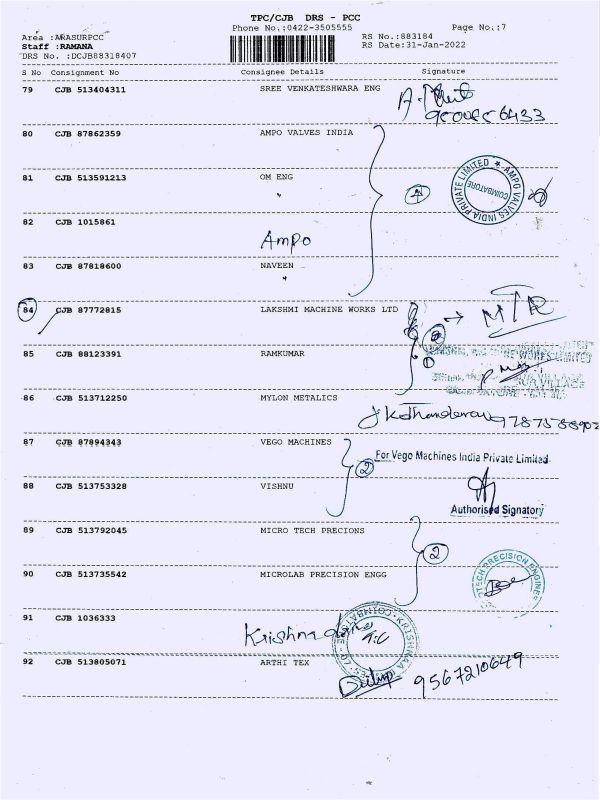 TPC/CJB DRS - PCC
Phone No.:0422-3505555
Page No.:7
Area :ARASURPCC
RS No.:883184
Staff :RAMANA
RS Date:31-Jan-2022
DRS No. :DCJB88318407
S No Consignment No Consignee Details Signature
79 CJB 513404311 SREE VENKATESHWARA ENG
80 CJB 87862359 AMPO VALVES INDIA
81 CJB 513591213 OM ENG
4
AMPO VALVES INDIA PRIVATE LIMITED
COIMBATORE
82 CJB 1015861
Ampo
83 CJB 87818600 NAVEEN
84 CJB 87772815 LAKSHMI MACHINE WORKS LTD
MTR
85 CJB 88123391 RAMKUMAR
86 CJB 513712250 MYLON METALICS
87 CJB 87894343 VEGO MACHINES
2
For Vego Machines India Private Limited
88 CJB 513753328 VISHNU
Authorised Signatory
89 CJB 513792045 MICRO TECH PRECIONS
2
90 CJB 513735542 MICROLAB PRECISION ENGG
91 CJB 1036333
92 CJB 513805071 ARTHI TEX
9567210649